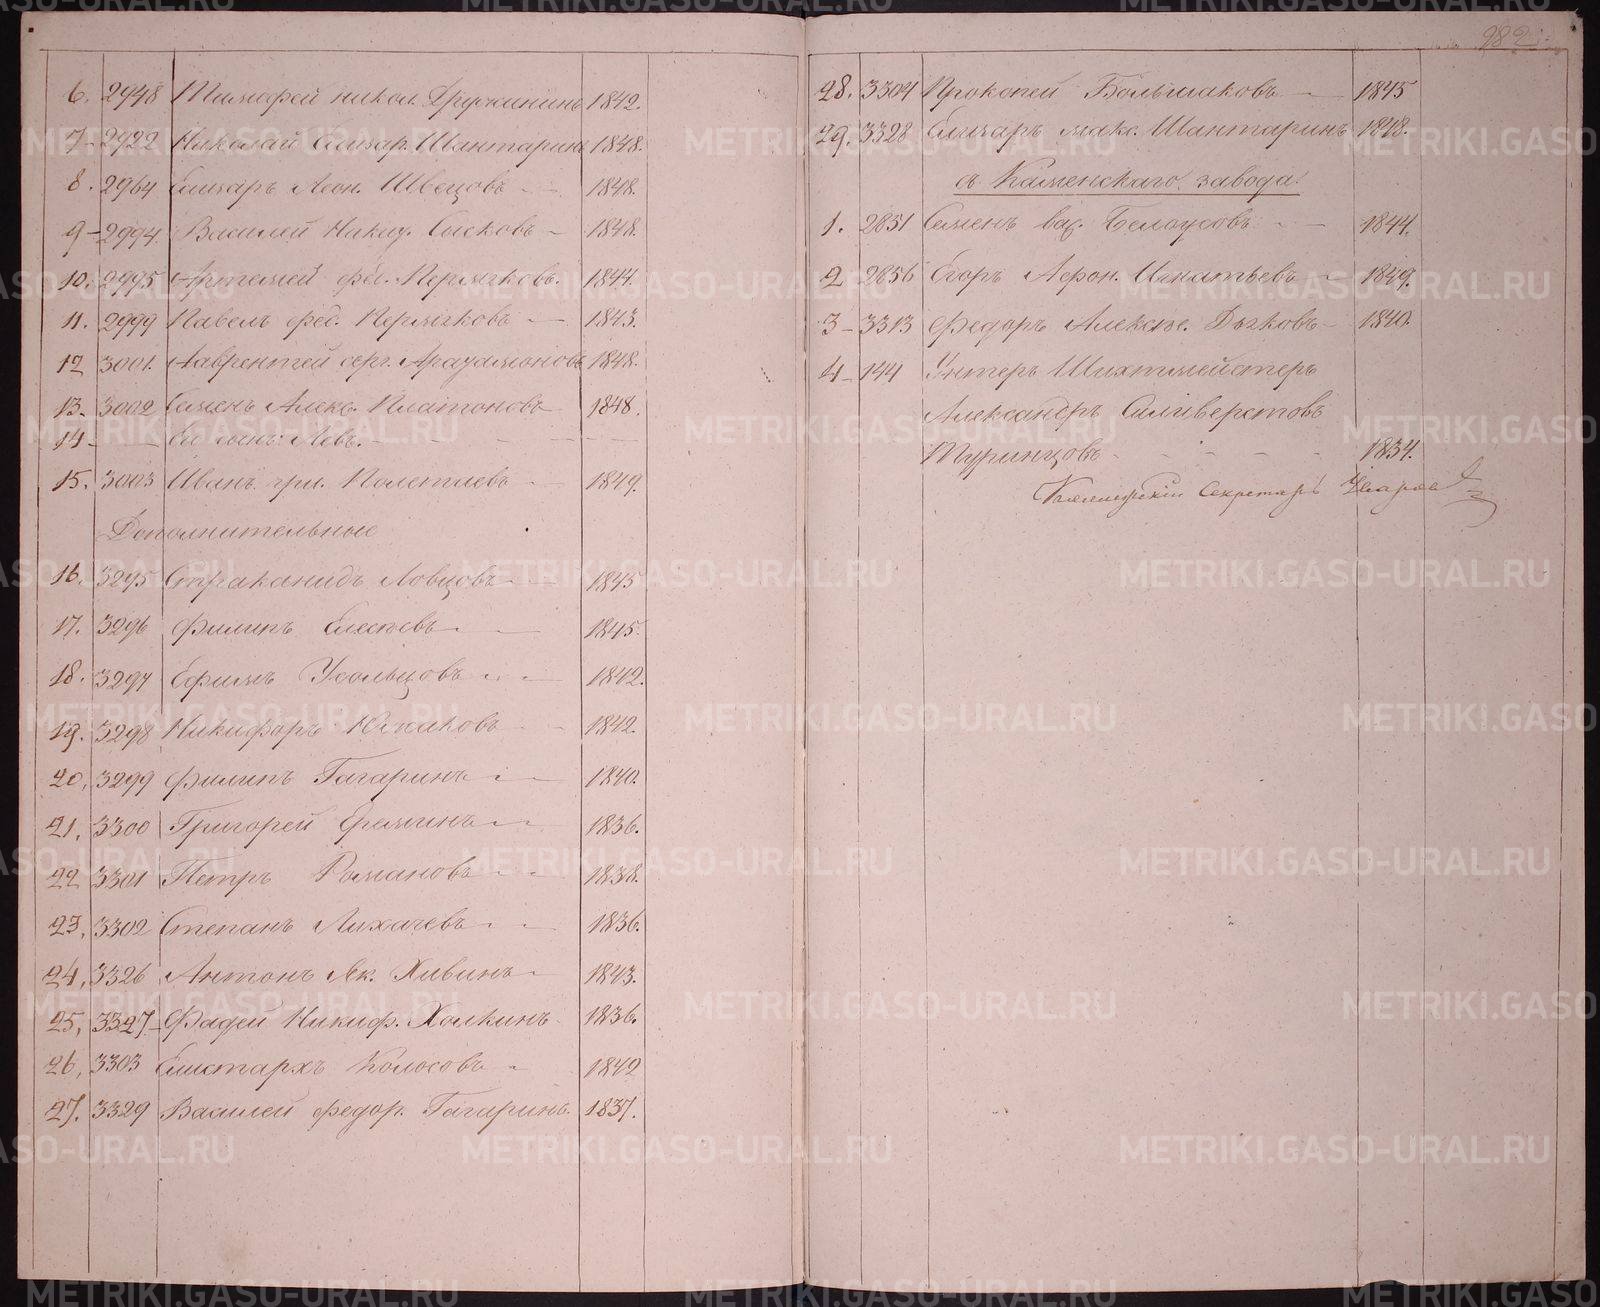 6. 2948 Тимофей никол. Дружининъ 1842.
7 - 2922 Николай Елизар. Шантаринъ 1848.
8. 2964 Елизаръ Леон. Швецовъ 1848.
9 - 2994 Василей Никиф. Сысковъ 1848.
10. 2995 Артемей фед. Пермяковъ. 1844.
11. 2999 Павелъ фед. Пермяковъ 1843.
12 3001. Лаврентей серг. 1848.
13. 3002 Семенъ Алекс. Платоновъ 1848.
14 - Его сынъ: Левъ.
15. 3003 Иванъ гри. Полетаевъ 1849.
Дополнительные
16. 3295 Ловцовъ 1845
17. 3296 Филипъ 1845.
18. 3297 Ефимъ Усольцовъ 1842.
19. 3298 Никифоръ Южаковъ 1842.
20, 3299 Филипъ Гагаринъ 1840.
21, 3300 Григорей Ереминъ 1836.
22 3301 Петръ Романовъ 1838.
23, 3302 Степанъ Лихачевъ 1836.
24, 3326 Антонъ Як. Хивинъ 1843.
25, 3327 - Фадей Никиф. Холкинъ 1836.
26, 3303 Колосовъ 1842
27. 3329 Василей федор. Гагаринъ. 1837.
982
28. 3304 Прокопей Большаковъ 1845
29. 3328 Елизаръ макс. Шантаринъ 1848.
а Каменскаго завода.
1. 2851 Семенъ вас. Белоусовъ 1844.
2 2856 Егоръ Афон. Игнатьевъ 1849.
3 - 3313 Федоръ Алексѣе. Дьчковъ 1840.
4 - 144 Унтеръ Шихтмейстеръ
Александръ Силиверстовъ
Туринцовъ 1834.
Коллежскій Секретарь